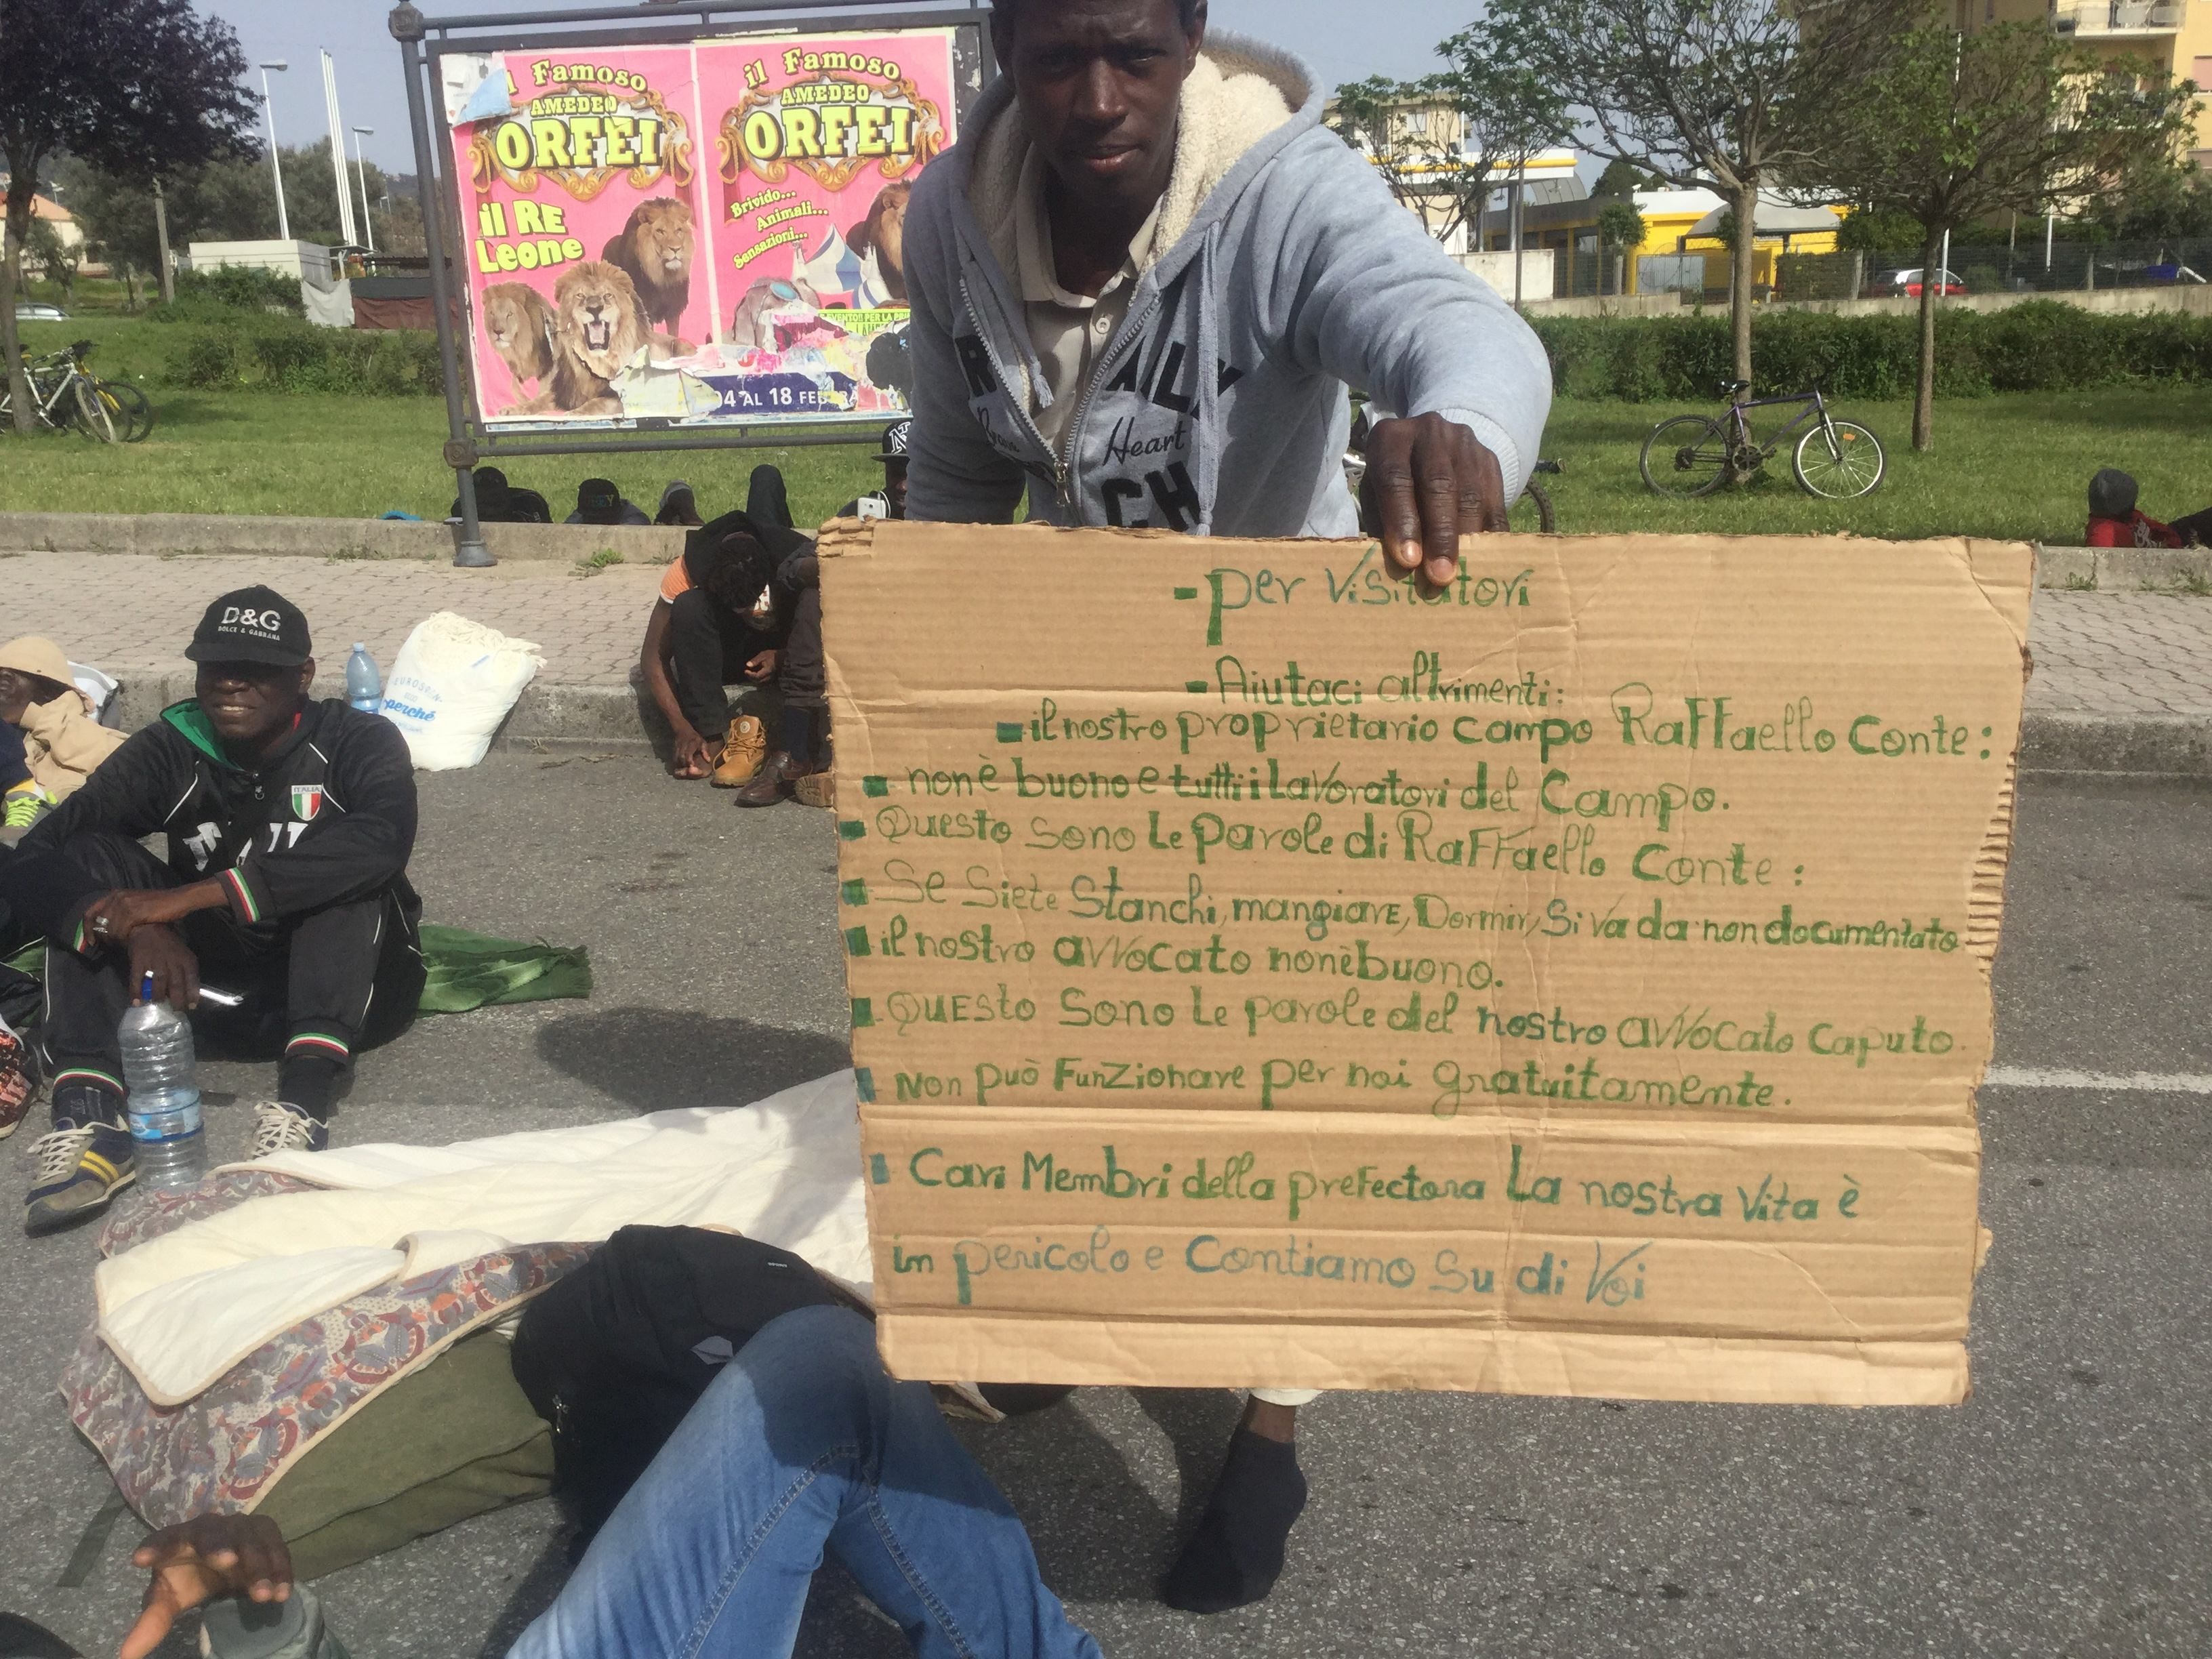 il Famoso
AMEDEO
ORFEI
il RE
Leone
04 AL 18 FEBBRA
il Famoso
AMEDEO
ORFEI
Brivido...
Animali...
Sensazioni...
EVENTO PER LA PRI
Heart
CH
D&G
DOLCE & GABBANA
ITALIA
EUROSPIN
perché
- per Visitatori
- Aiutaci altrimenti:
- il nostro proprietario campo Raffaello Conte:
- non è buono e tutti i Lavoratori del Campo.
- Questo Sono Le Parole di Raffaello Conte:
- Se Siete Stanchi, mangiare, Dormir, Si va da non documentato
- il nostro avvocato non è buono.
- Questo Sono Le parole del nostro avvocato Caputo.
- Non può Funzionare per noi gratuitamente.
- Cari Membri della prefectora La nostra Vita è
in pericolo e Contiamo Su di Voi